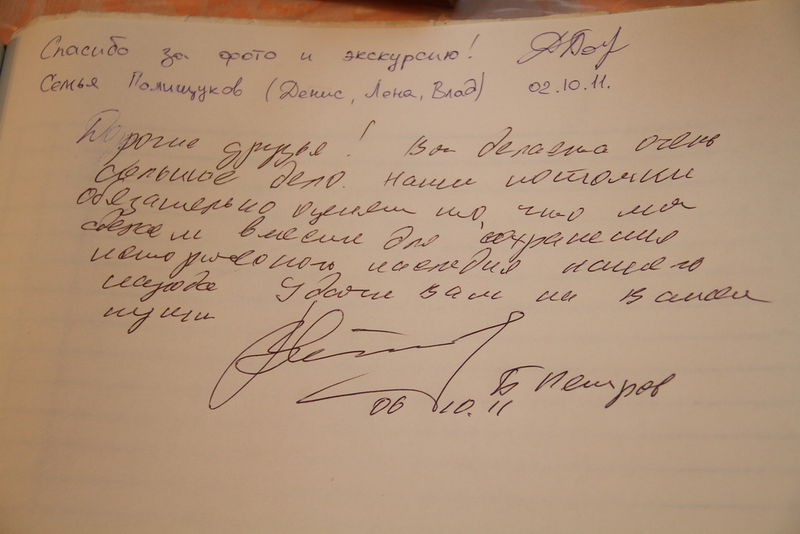 Спасибо за фото и экскурсию!
Семья Полищуков (Денис, Лена, Влад) 02.10.11.
Дорогие друзья! Вы делаете очень
большое дело. Наши потомки
обязательно оценят то, что мы
вместе для сохранения
исторического наследия нашего
народа Удачи Вам на Вашем
пути
06 10.11 Б Петров